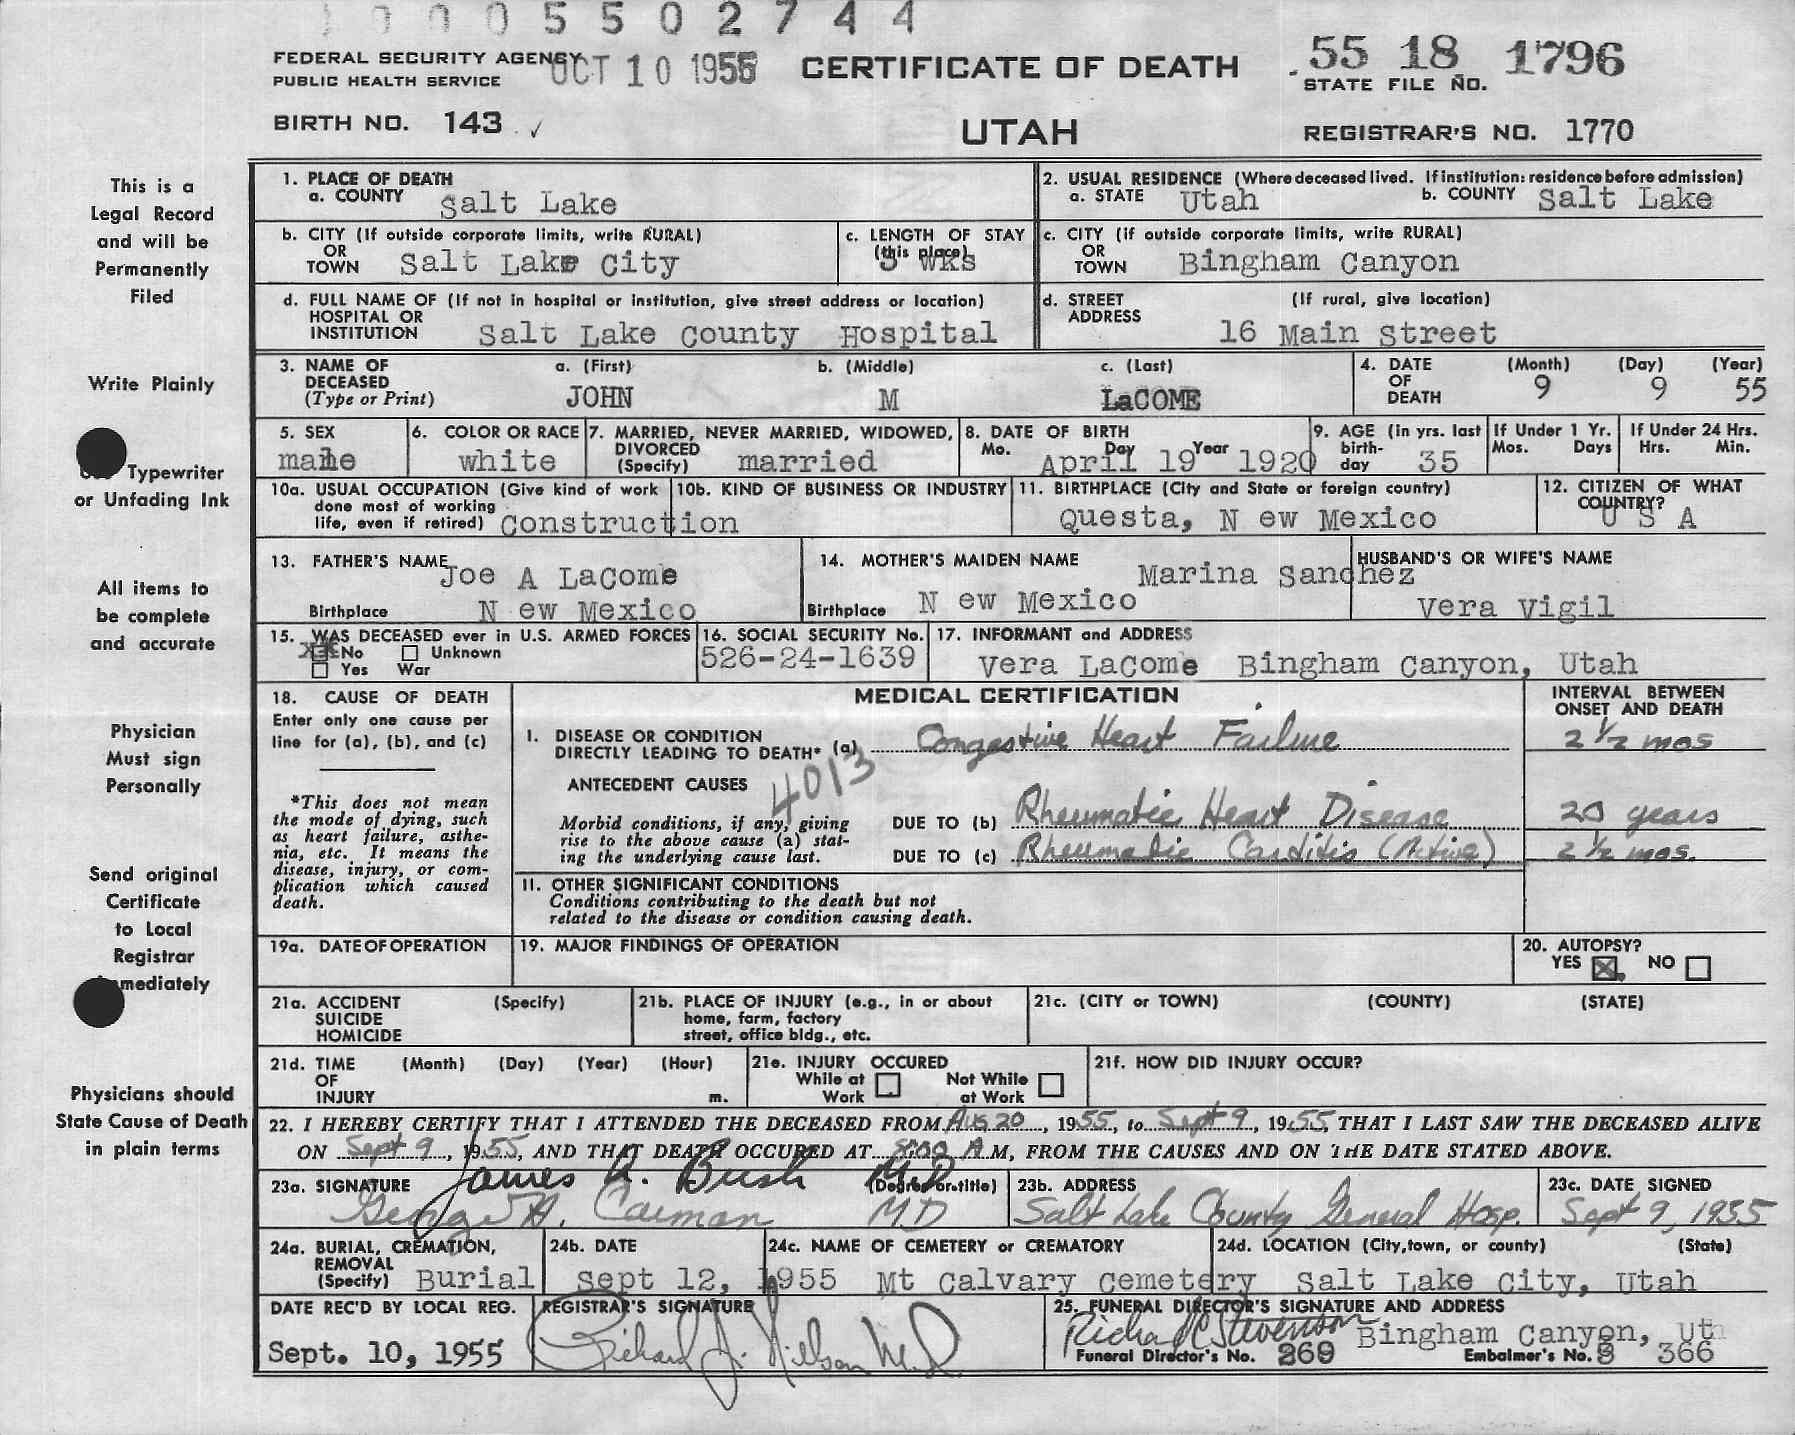 1 0 0 0 5 5 0 2 7 4 4
FEDERAL SECURITY AGENCY
PUBLIC HEALTH SERVICE
OCT 10 1955
CERTIFICATE OF DEATH
55 18 1796
STATE FILE NO.
BIRTH NO. 143 ✓
UTAH
REGISTRAR'S NO. 1770
This is a
Legal Record
and will be
Permanently
Filed
Write Plainly
Typewriter
or Unfading Ink
All items to
be complete
and accurate
Physician
Must sign
Personally
Send original
Certificate
to Local
Registrar
mmediately
Physicians should
State Cause of Death
in plain terms
1. PLACE OF DEATH
a. COUNTY Salt Lake
2. USUAL RESIDENCE (Where deceased lived. If institution: residence before admission)
a. STATE Utah b. COUNTY Salt Lake
b. CITY (If outside corporate limits, write RURAL)
OR
TOWN Salt Lake City
c. LENGTH OF STAY
(this place)
3 wks
c. CITY (if outside corporate limits, write RURAL)
OR
TOWN Bingham Canyon
d. FULL NAME OF (If not in hospital or institution, give street address or location)
HOSPITAL OR
INSTITUTION Salt Lake County Hospital
d. STREET (If rural, give location)
ADDRESS
16 Main Street
3. NAME OF a. (First) b. (Middle) c. (Last)
DECEASED
(Type or Print) JOHN M LaCOME
4. DATE (Month) (Day) (Year)
OF
DEATH 9 9 55
5. SEX
male
6. COLOR OR RACE
white
7. MARRIED, NEVER MARRIED, WIDOWED,
DIVORCED
(Specify) married
8. DATE OF BIRTH
Mo. Day Year
April 19 1920
9. AGE (in yrs. last
birth-
day 35
If Under 1 Yr.
Mos. Days
If Under 24 Hrs.
Hrs. Min.
10a. USUAL OCCUPATION (Give kind of work
done most of working
life, even if retired) Construction
10b. KIND OF BUSINESS OR INDUSTRY
11. BIRTHPLACE (City and State or foreign country)
Questa, N ew Mexico
12. CITIZEN OF WHAT
COUNTRY?
U S A
13. FATHER'S NAME
Joe A LaCome
Birthplace N ew Mexico
14. MOTHER'S MAIDEN NAME
Marina Sanchez
Birthplace N ew Mexico
HUSBAND'S OR WIFE'S NAME
Vera Vigil
15. WAS DECEASED ever in U.S. ARMED FORCES
No Unknown
Yes War
16. SOCIAL SECURITY No.
526-24-1639
17. INFORMANT and ADDRESS
Vera LaCome Bingham Canyon, Utah
18. CAUSE OF DEATH
Enter only one cause per
line for (a), (b), and (c)
*This does not mean
the mode of dying, such
as heart failure, asthe-
nia, etc. It means the
disease, injury, or com-
plication which caused
death.
MEDICAL CERTIFICATION
INTERVAL BETWEEN
ONSET AND DEATH
I. DISEASE OR CONDITION
DIRECTLY LEADING TO DEATH* (a) Congestive Heart Failure 2 1/2 mos
ANTECEDENT CAUSES
4013
Morbid conditions, if any, giving
rise to the above cause (a) stat-
ing the underlying cause last.
DUE TO (b) Rheumatic Heart Disease 20 years
DUE TO (c) Rheumatic Carditis (Active) 2 1/2 mos.
11. OTHER SIGNIFICANT CONDITIONS
Conditions contributing to the death but not
related to the disease or condition causing death.
19a. DATE OF OPERATION
19. MAJOR FINDINGS OF OPERATION
20. AUTOPSY?
YES NO
21a. ACCIDENT (Specify)
SUICIDE
HOMICIDE
21b. PLACE OF INJURY (e.g., in or about
home, farm, factory
street, office bldg., etc.
21c. (CITY or TOWN) (COUNTY) (STATE)
21d. TIME (Month) (Day) (Year) (Hour)
OF
INJURY m.
21e. INJURY OCCURED
While at Not While
Work at Work
21f. HOW DID INJURY OCCUR?
22. I HEREBY CERTIFY THAT I ATTENDED THE DECEASED FROM Aug 20, 1955, to Sept 9, 1955, THAT I LAST SAW THE DECEASED ALIVE
ON Sept 9, 1955, AND THAT DEATH OCCURED AT 8:00 A.M, FROM THE CAUSES AND ON THE DATE STATED ABOVE.
James A. Bush MD
23a. SIGNATURE (Degree or title)
George H. Carman MD
23b. ADDRESS
Salt Lake County General Hosp.
23c. DATE SIGNED
Sept 9, 1955
24a. BURIAL, CREMATION,
REMOVAL
(Specify) Burial
24b. DATE
Sept 12, 1955
24c. NAME OF CEMETERY or CREMATORY
Mt Calvary Cemetery
24d. LOCATION (City, town, or county) (State)
Salt Lake City, Utah
DATE REC'D BY LOCAL REG.
Sept. 10, 1955
REGISTRAR'S SIGNATURE
Richard J. Nilson M.D.
25. FUNERAL DIRECTOR'S SIGNATURE AND ADDRESS
Richard C Stevenson Bingham Canyon, Ut
Funeral Director's No. 269 Embalmer's No. 366